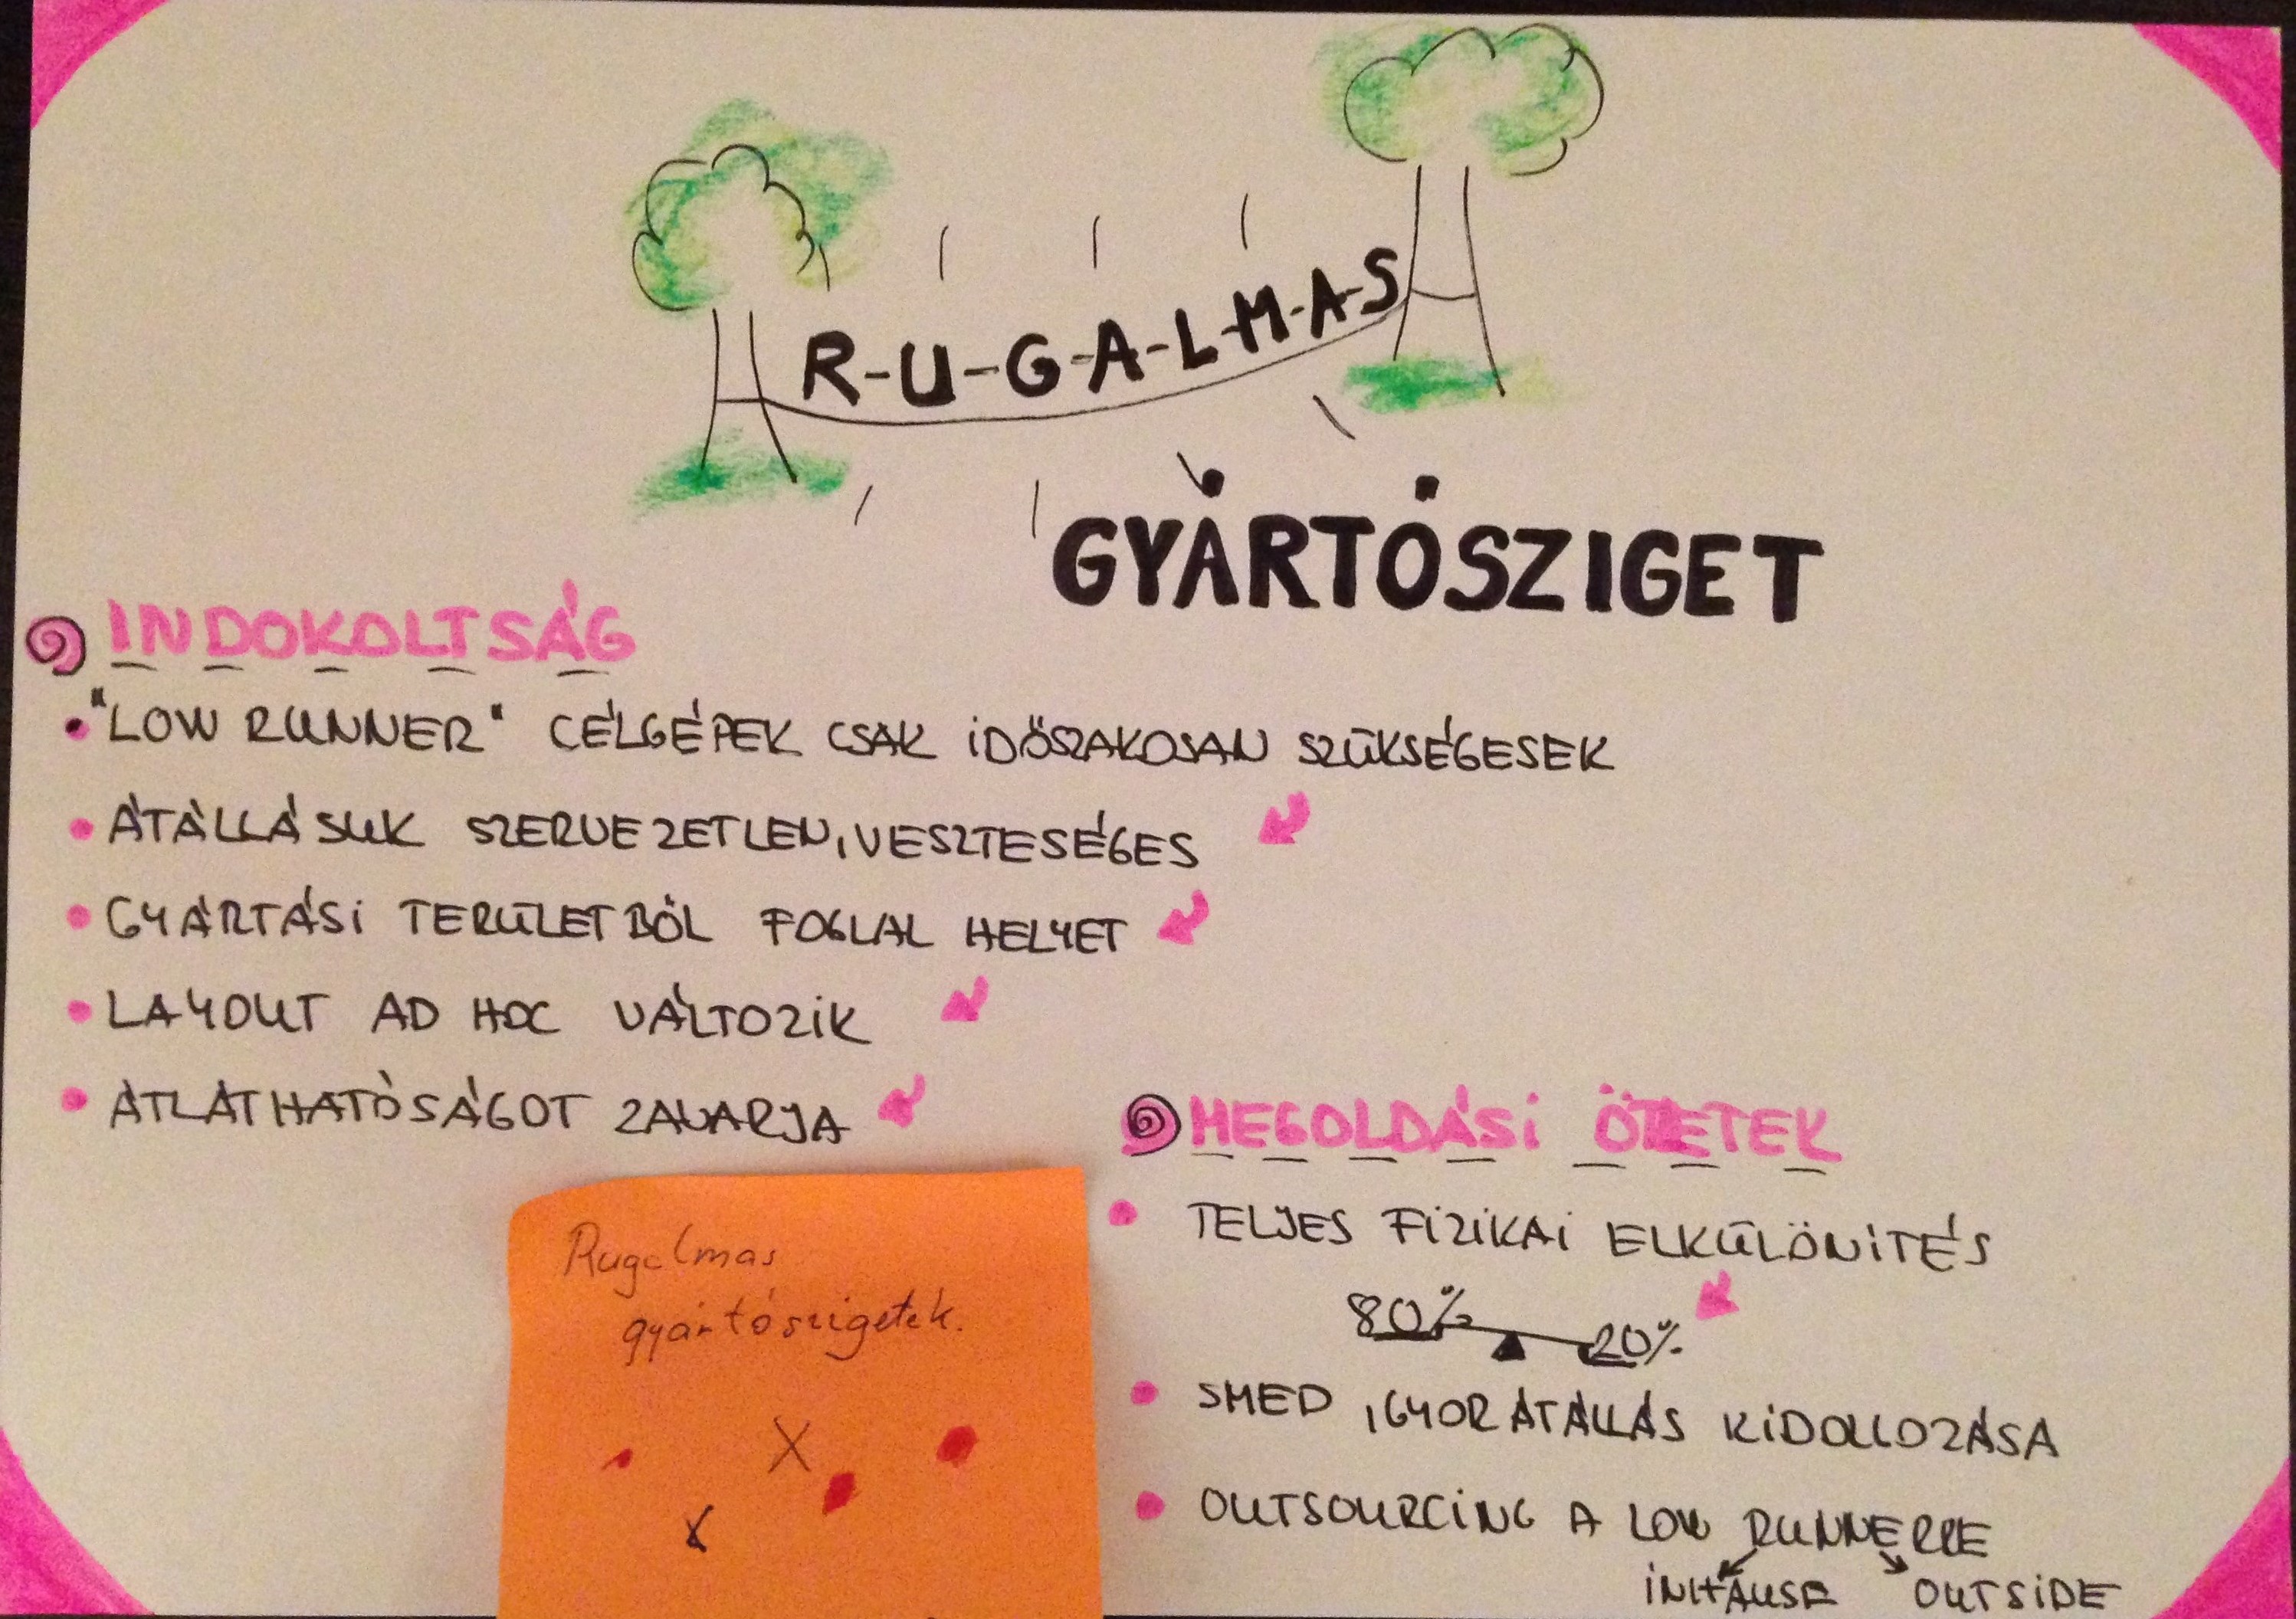 R-U-G-A-L-M-A-S
GYÁRTÓSZIGET
INDOKOLTSÁG
"LOW RUNNER" CÉLGÉPEK CSAK IDŐSZAKOSAN SZÜKSÉGESEK
ÁTÁLLÁSUK SZERVEZETLEN, VESZTESÉGES
GYÁRTÁSI TERÜLETBŐL FOGLAL HELYET
LAYOUT AD HOC VÁLTOZIK
ÁTLÁTHATÓSÁGOT ZAVARJA
MEGOLDÁSI ÖTLETEK
TELJES FIZIKAI ELKÜLÖNITÉS
80% 20%
SMED, GYORÁTÁLLÁS KIDOLGOZÁSA
OUTSOURCING A LOW RUNNERRE
INHAUSE OUTSIDE
Rugalmas
gyártószigetek.
X
x